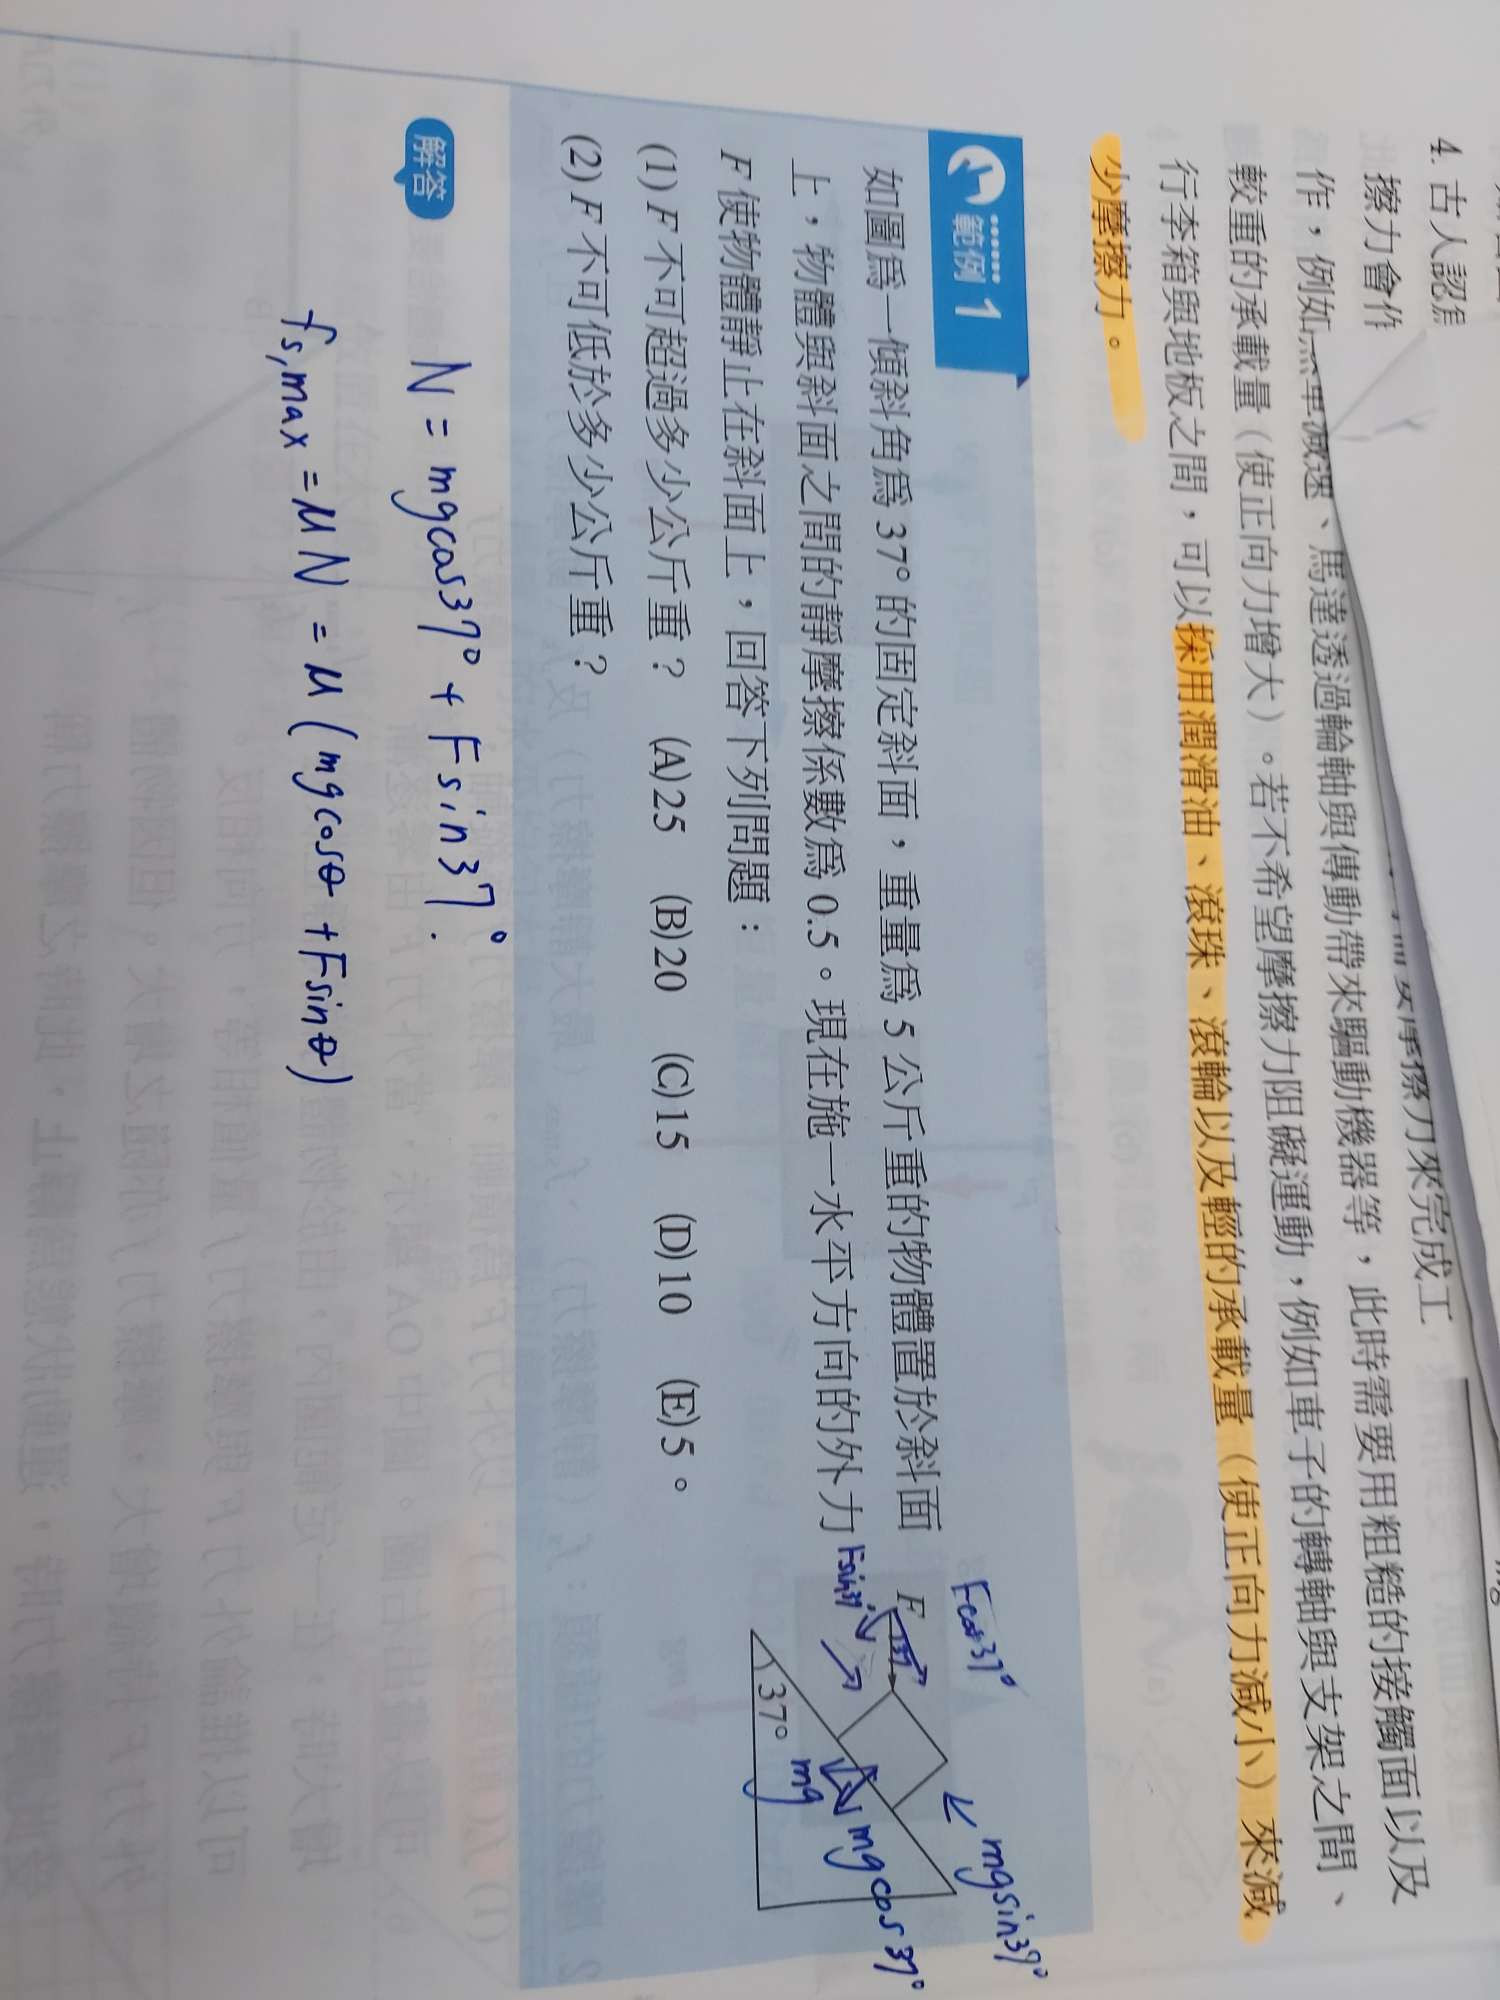 4. 古人認為
擦力會作
要摩擦力來完成工
此時需要用粗糙的接觸面以及
作，例如 減速、馬達透過輪軸與傳動帶來驅動機器等，
較重的承載量（使正向力增大）。若不希望摩擦力阻礙運動，例如車子的轉軸與支架之間、
行李箱與地板之間，可以採用潤滑油、滾珠、滾輪以及輕的承載量（使正向力減小）來減
少摩擦力。
範例 1
如圖為一傾斜角為 37° 的固定斜面，重量為 5 公斤重的物體置於斜面
上，物體與斜面之間的靜摩擦係數為 0.5。現在施一水平方向的外力
F 使物體靜止在斜面上，回答下列問題：
(1) F 不可超過多少公斤重？ (A)25 (B)20 (C)15 (D)10 (E)5。
(2) F 不可低於多少公斤重？
Fcos37°
F
37°
Fsin37°
mgsin37°
mgcos37°
mg
37°
解答
N = mgcos37° + Fsin37°.
fs,max = μN = μ(mgcosθ + Fsinθ)